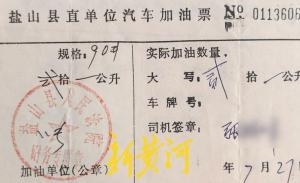 盐山县直单位汽车加油票 No 0113606
规格：90#
实际加油数量
贰拾 公升
大 写：贰拾 公升
车 牌 号：
司机签章：
盐山县人民法院
新黄河
加油单位(公章)
年 7 月 27